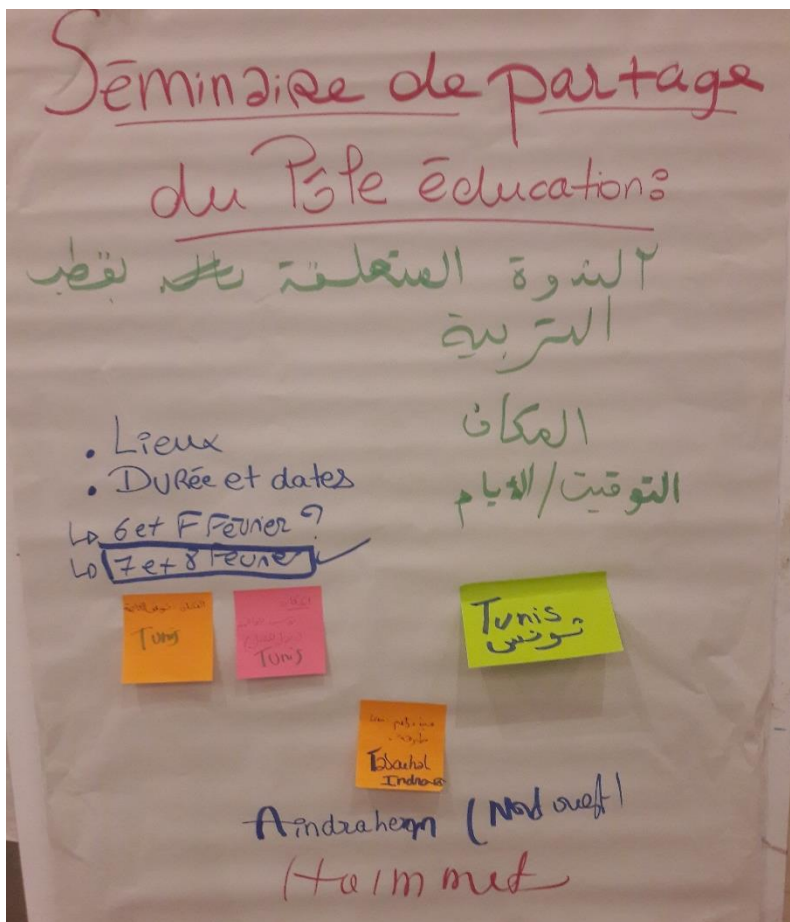 Séminaire de partage
du Pôle éducation:
الندوة المتعلقة بقطب
التربية
المكان
التوقيت/الأيام
• Lieux
• Durée et dates
↳ 6 et 7 Février ?
↳ 7 et 8 Février ✓
Tunis
Tunis
Tunis
تونس
Aindrahem (Nord ouest)
Hammet